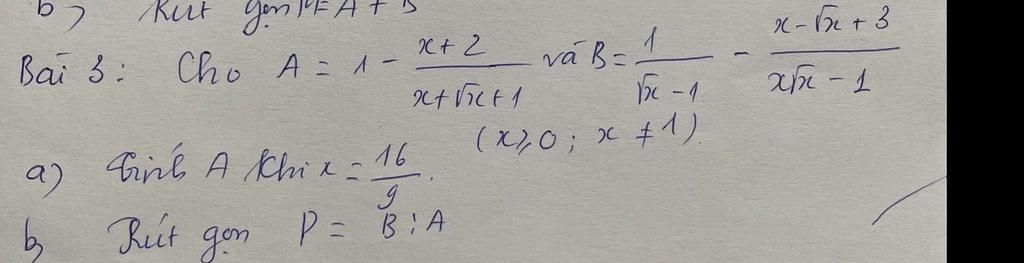 b) Rút gọn P = A + B
Bài 3: Cho A = 1 - \frac{x+2}{x+\sqrt{x}+1} và B = \frac{1}{\sqrt{x}-1} - \frac{x-\sqrt{x}+3}{x\sqrt{x}-1}
(x ≥ 0; x ≠ 1).
a) Tính A khi x = \frac{16}{9}.
b, Rút gọn P = B : A